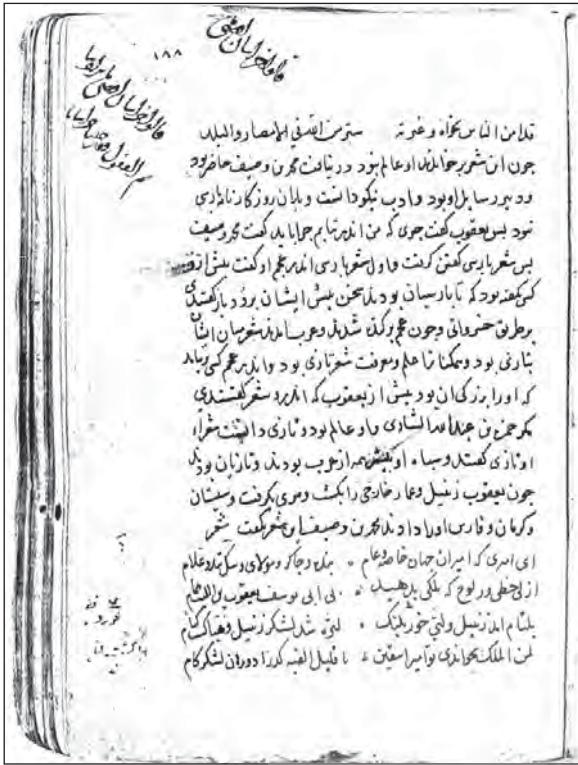 ١٨٨
قد امن الناس بخراه وغرته ستر من الله في الامصار والبلد
چون این شعر برخواندند او عالم نبود درنیافت محمد بن وصیف حاضر بود
و دبیر رسایل او بود و ادب نیکو دانست و بدان روزگار نامه پارسی
نبود بس یعقوب گفت چیزی که من اندر نیابم چرا باید گفت محمد وصیف
بس شعر پارسی گفتن گرفت و اول شعر پارسی اندر عجم او گفت بیش ازو
کسی نگفته بود که تا پارسیان بودند سخن بیش ایشان برود باز گفتندی
بر طریق خسروانی و چون عجم برکنده شدند و عرب آمدند شعر میان ایشان
بتازی بود و همگنانرا علم و معرفت شعر تازی بود و اندر عجم کسی برنیامد
که او را بزرگی آن بود بیش از یعقوب که اندرو شعر گفتندی
مگر حمزه بن عبدالله الشاری و او عالم بود و تازی دانست شعراء
او تازی گفتند و سپاه او بیشتر همه از عرب بودند و تازیان بودند
چون یعقوب زنبیل و عمار خارجی را بکشت و هری بگرفت و سیستان
و کرمان و فارس او را دادند محمد بن وصیف این شعر بگفت شعر
ای امیری که امیران جهان خاصه و عام بنده و چاکر و مولای و سک بند و غلام
ازلی خطی در لوح که ملکی بدهید بی ابی یوسف یعقوب بن اللیث همام
بلتام آمد زنبیل و لتی خورد بلنک لتره شد لشکر زنبیل و هبا کشت کنام
لمن الملک بخواندی تو امیرا بیقین با قلیل الفئه کت داد در آن لشکر کام